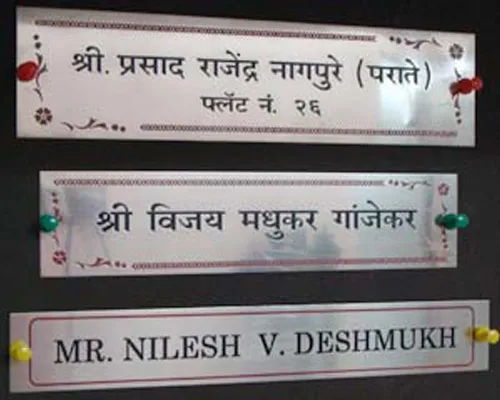 श्री. प्रसाद राजेंद्र नागपुरे (पराते)
फ्लॅट नं. २६
श्री विजय मधुकर गांजेकर
MR. NILESH V. DESHMUKH